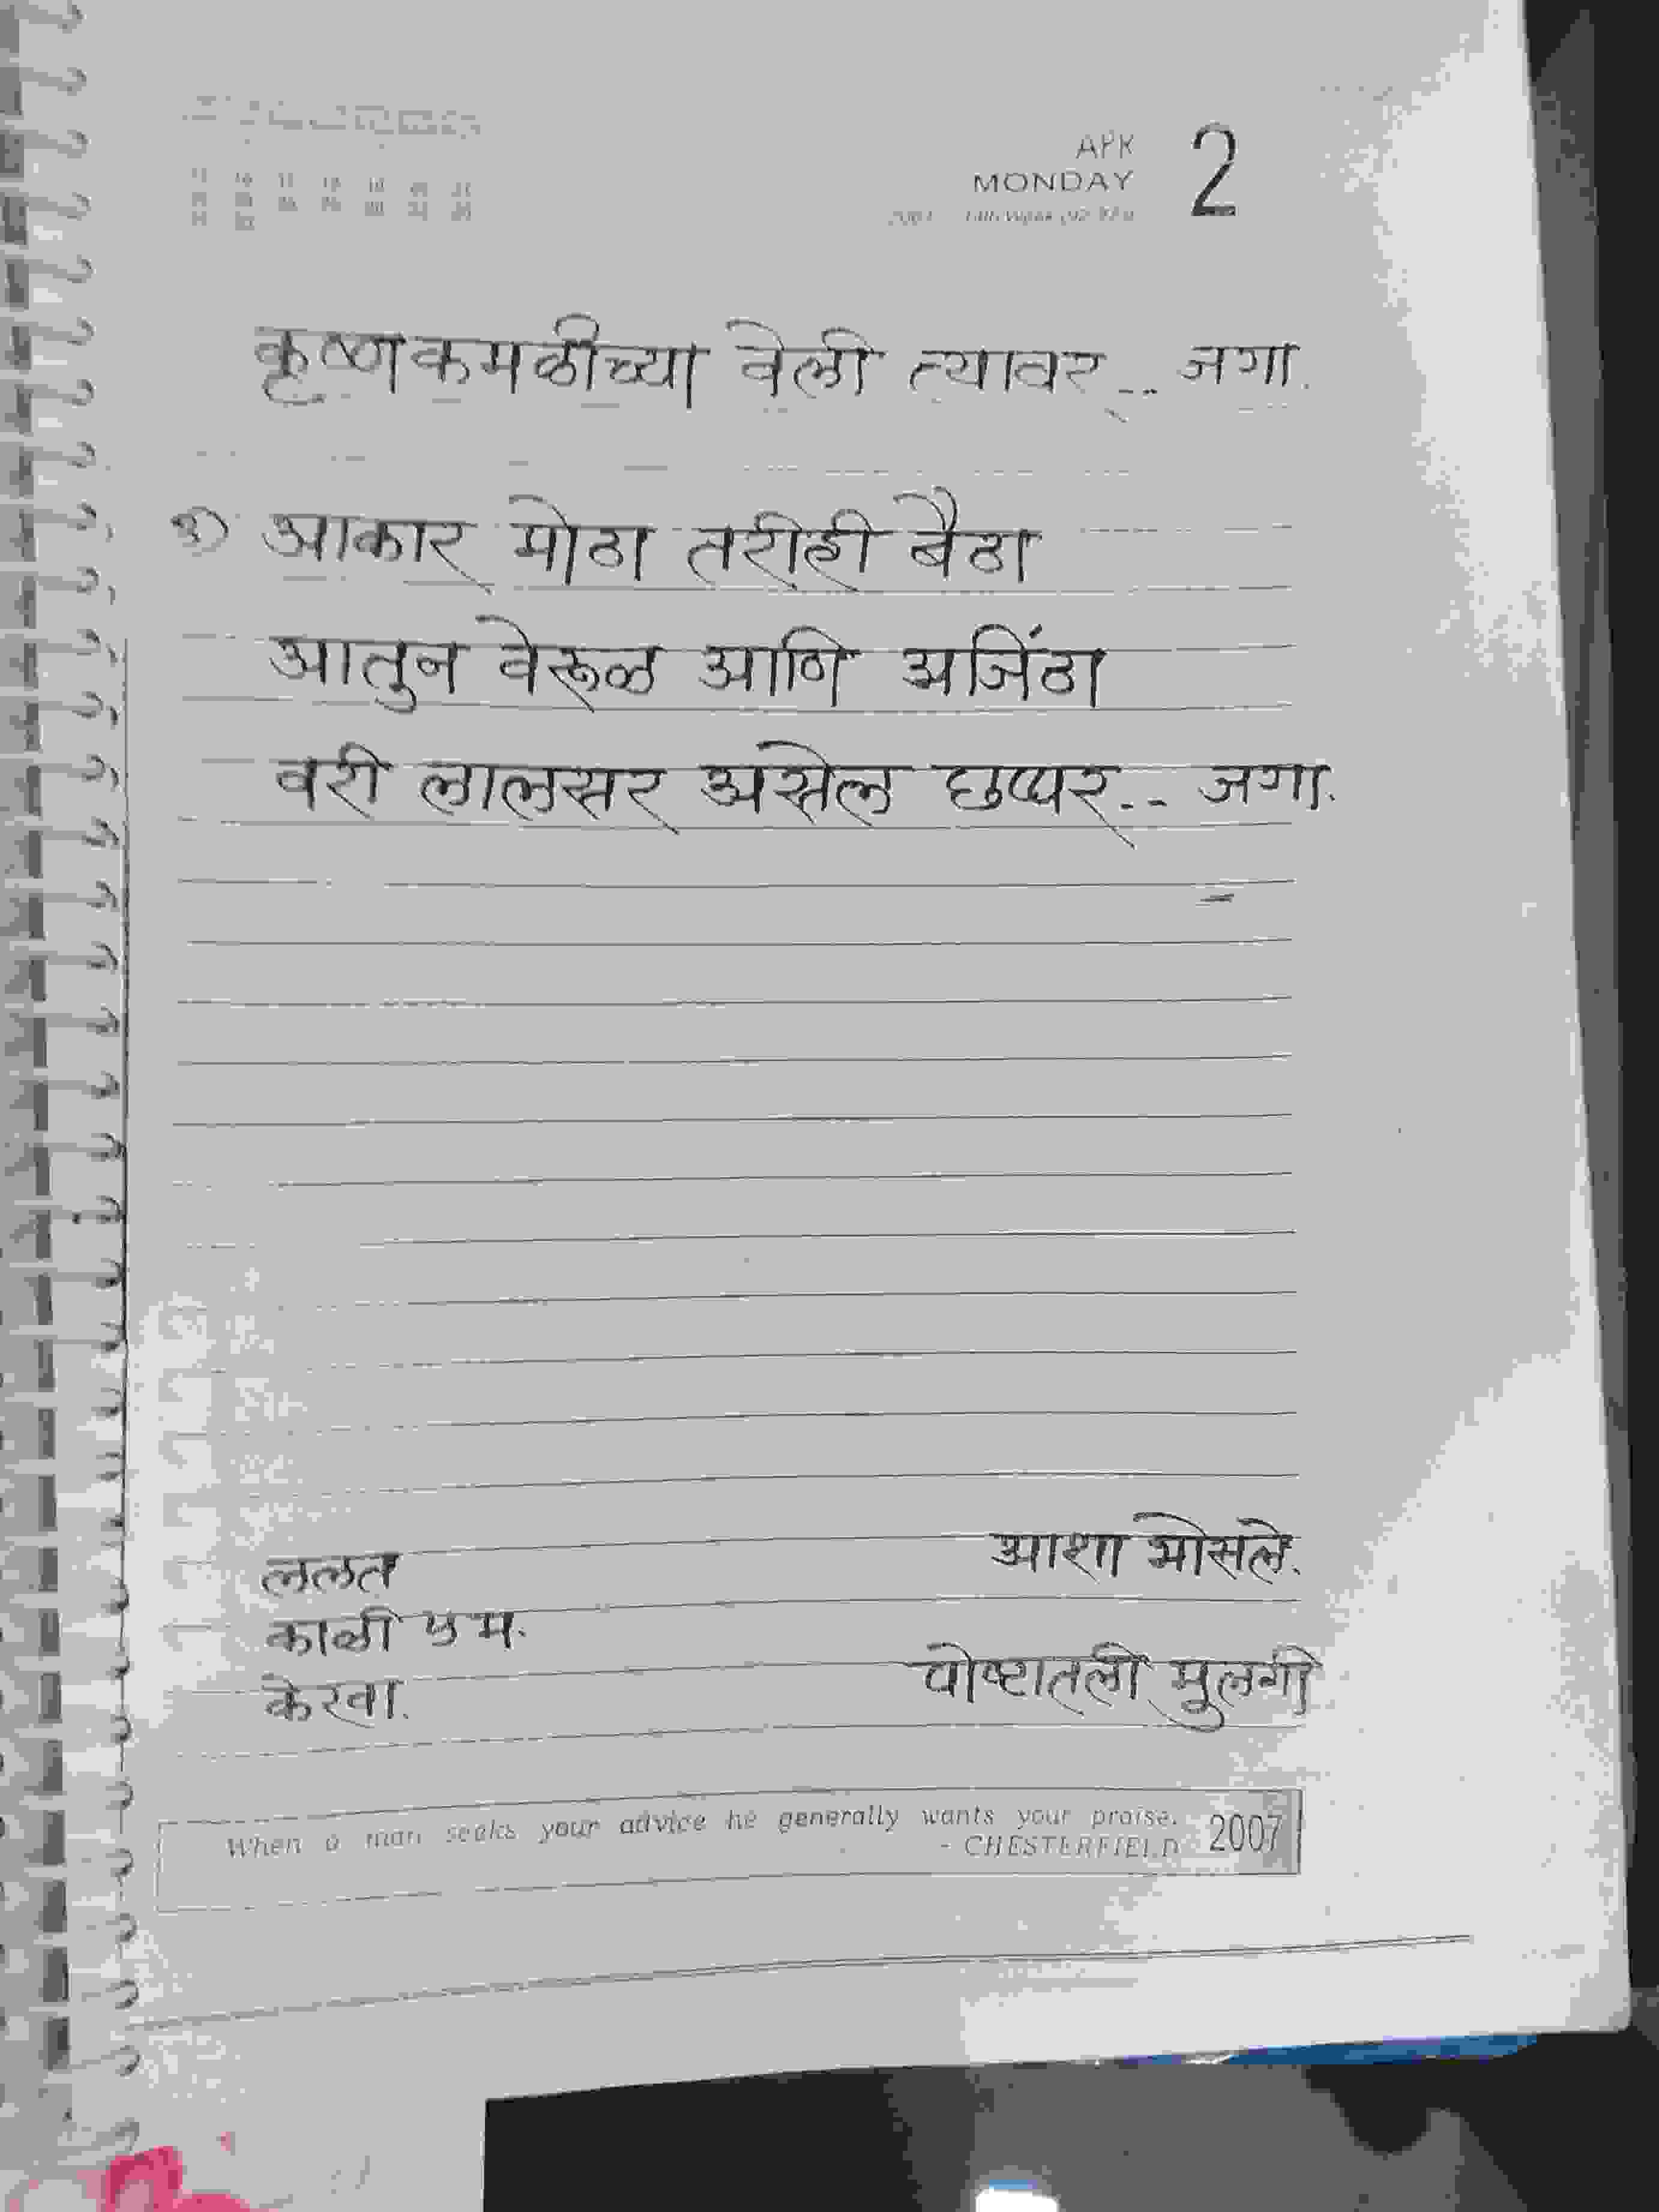 APR 2
MONDAY
2007
कृष्णकमळीच्या वेली त्यावर.. जगा.
३) आकार मोठा तरीही बैठा
आतुन वेरूळ आणि अजिंठा
वरी लालसर असेल छप्पर.. जगा.
आशा भोसले.
ललत
काळी ५ म.
केरवा.
पोष्टातली मुलगी
When a man seeks your advice he generally wants your praise.
- CHESTERFIELD 2007